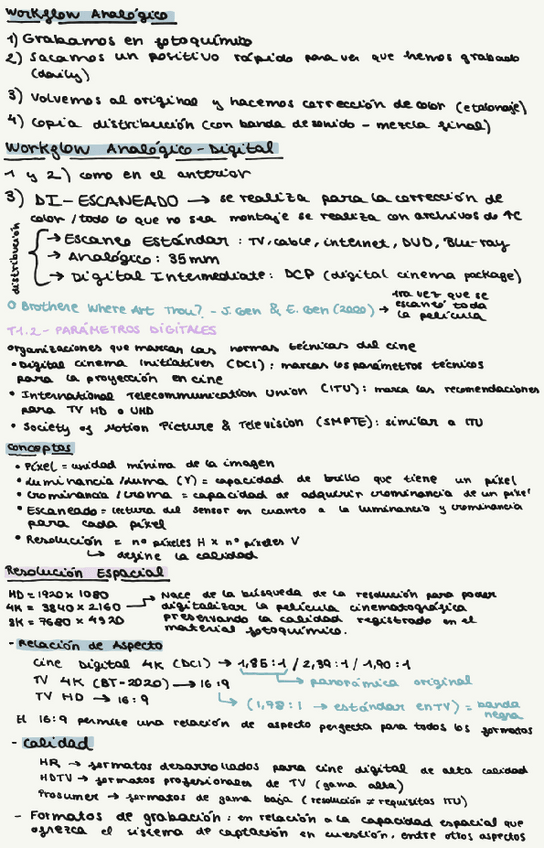 Workflow Analógico
1) Grabamos en fotoquímico
2) Sacamos un positivo rápido para ver que hemos grabado
(daily)
3) Volvemos al original y hacemos corrección de color (etalonaje)
4) Copia distribución (con banda de sonido - mezcla final)
Workflow Analógico - Digital
1 y 2) como en el anterior
3) DI - ESCANEADO → se realiza para la corrección de
color / todo lo que no sea montaje se realiza con archivos de 4C
distribución
→ Escaneo Estándar : TV, cable, internet, DVD, Blu-ray
→ Analógico : 35mm
→ Digital Intermediate : DCP (digital cinema package)
O Brothere Where Art Thou? - J. Coen & E. Coen (2000) → 1ra vez que se
escaneó toda
la película
T.1.2 - PARÁMETROS DIGITALES
organizaciones que marcan las normas técnicas del cine
• Digital cinema Initiatives (DCI) : marcas los parámetros técnicos
para la proyección en cine
• International Telecommunication Union (ITU) : marca las recomendaciones
para TV HD o UHD
• Society of Motion Picture & Television (SMPTE) : similar a ITU
Conceptos
• Píxel = unidad mínima de la imagen
• Luminancia / luma (Y) = capacidad de brillo que tiene un píxel
• Crominancia / croma = capacidad de adquirir crominancia de un píxel
• Escaneado = lectura del sensor en cuanto a la luminancia y crominancia
para cada píxel
• Resolución = nº píxeles H x nº píxeles V
↳ define la calidad
Resolución Espacial
HD = 1920 x 1080
4K = 3840 x 2160 → Nace de la búsqueda de la resolución para poder
8K = 7680 x 4320 digitalizar la película cinematográfica
preservando la calidad registrado en el
material fotoquímico.
- Relación de Aspecto
Cine Digital 4K (DCI) → 1,85 : 1 / 2,39 : 1 / 1,90 : 1
TV 4K (BT-2020) → 16:9 → panorámica original
TV HD → 16:9 ↳ (1,78 : 1 → estándar en TV) = banda
negra
El 16:9 permite una relación de aspecto perfecta para todos los formatos
- Calidad
HR → formatos desarrollados para cine digital de alta calidad
HDTV → formatos profesionales de TV (gama alta)
Prosumer → formatos de gama baja (resolución ≠ requisitos ITU)
- Formatos de grabación : en relación a la capacidad espacial que
ofrezca el sistema de captación en cuestión, entre otros aspectos